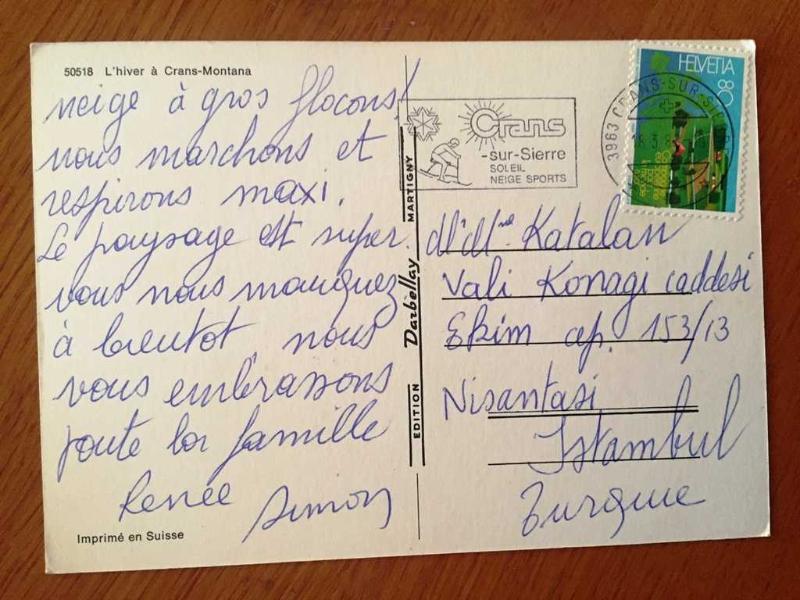 50518 L'hiver à Crans-Montana
neige à gros flocons!
nous marchons et
respirons maxi.
Le paysage est super
vous nous manquez
à bientot nous
vous embrassons
toute la famille
Renée Simon
Imprimé en Suisse
EDITION Darbellay MARTIGNY
Crans
-sur-Sierre
SOLEIL
NEIGE SPORTS
3963 CRANS-SUR-SIERRE
HELVETIA 80
M. Mme Katalan
Vali Konagi Caddesi
Ekim ap. 153/13
Nisantasi
Istambul
Turquie